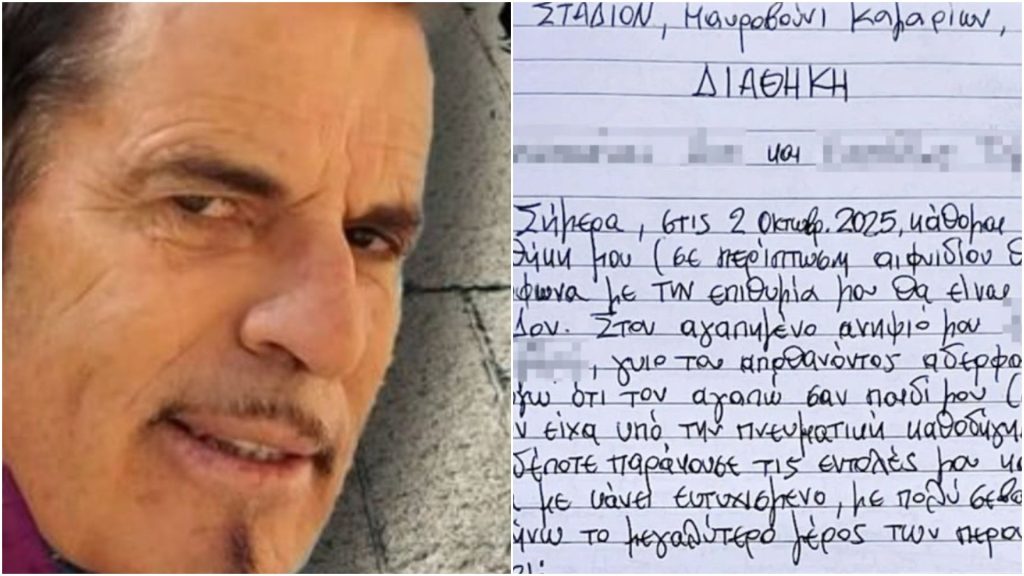 ΣΤΑΔΙΟΝ, Μαυροβούνι Καμαρίων,
ΔΙΑΘΗΚΗ
και
Σήμερα, στις 2 Οκτωβρ. 2025, κάθομαι
θήκη μου (σε περίπτωση αιφνιδίου θ
φωνα με την επιθυμία μου θα είναι
δον. Στον αγαπημένο ανηψιό μου
, γυιο του αποθανόντος αδερφο
γω ότι τον αγαπώ σαν παιδί μου (
ν είχα υπό την πνευματική καθοδήγη
δέποτε παράκουσε τις εντολές μου κα
με κάνει ευτυχισμένο, με πολύ σεβα
ήνω το μεγαλύτερο μέρος των περα